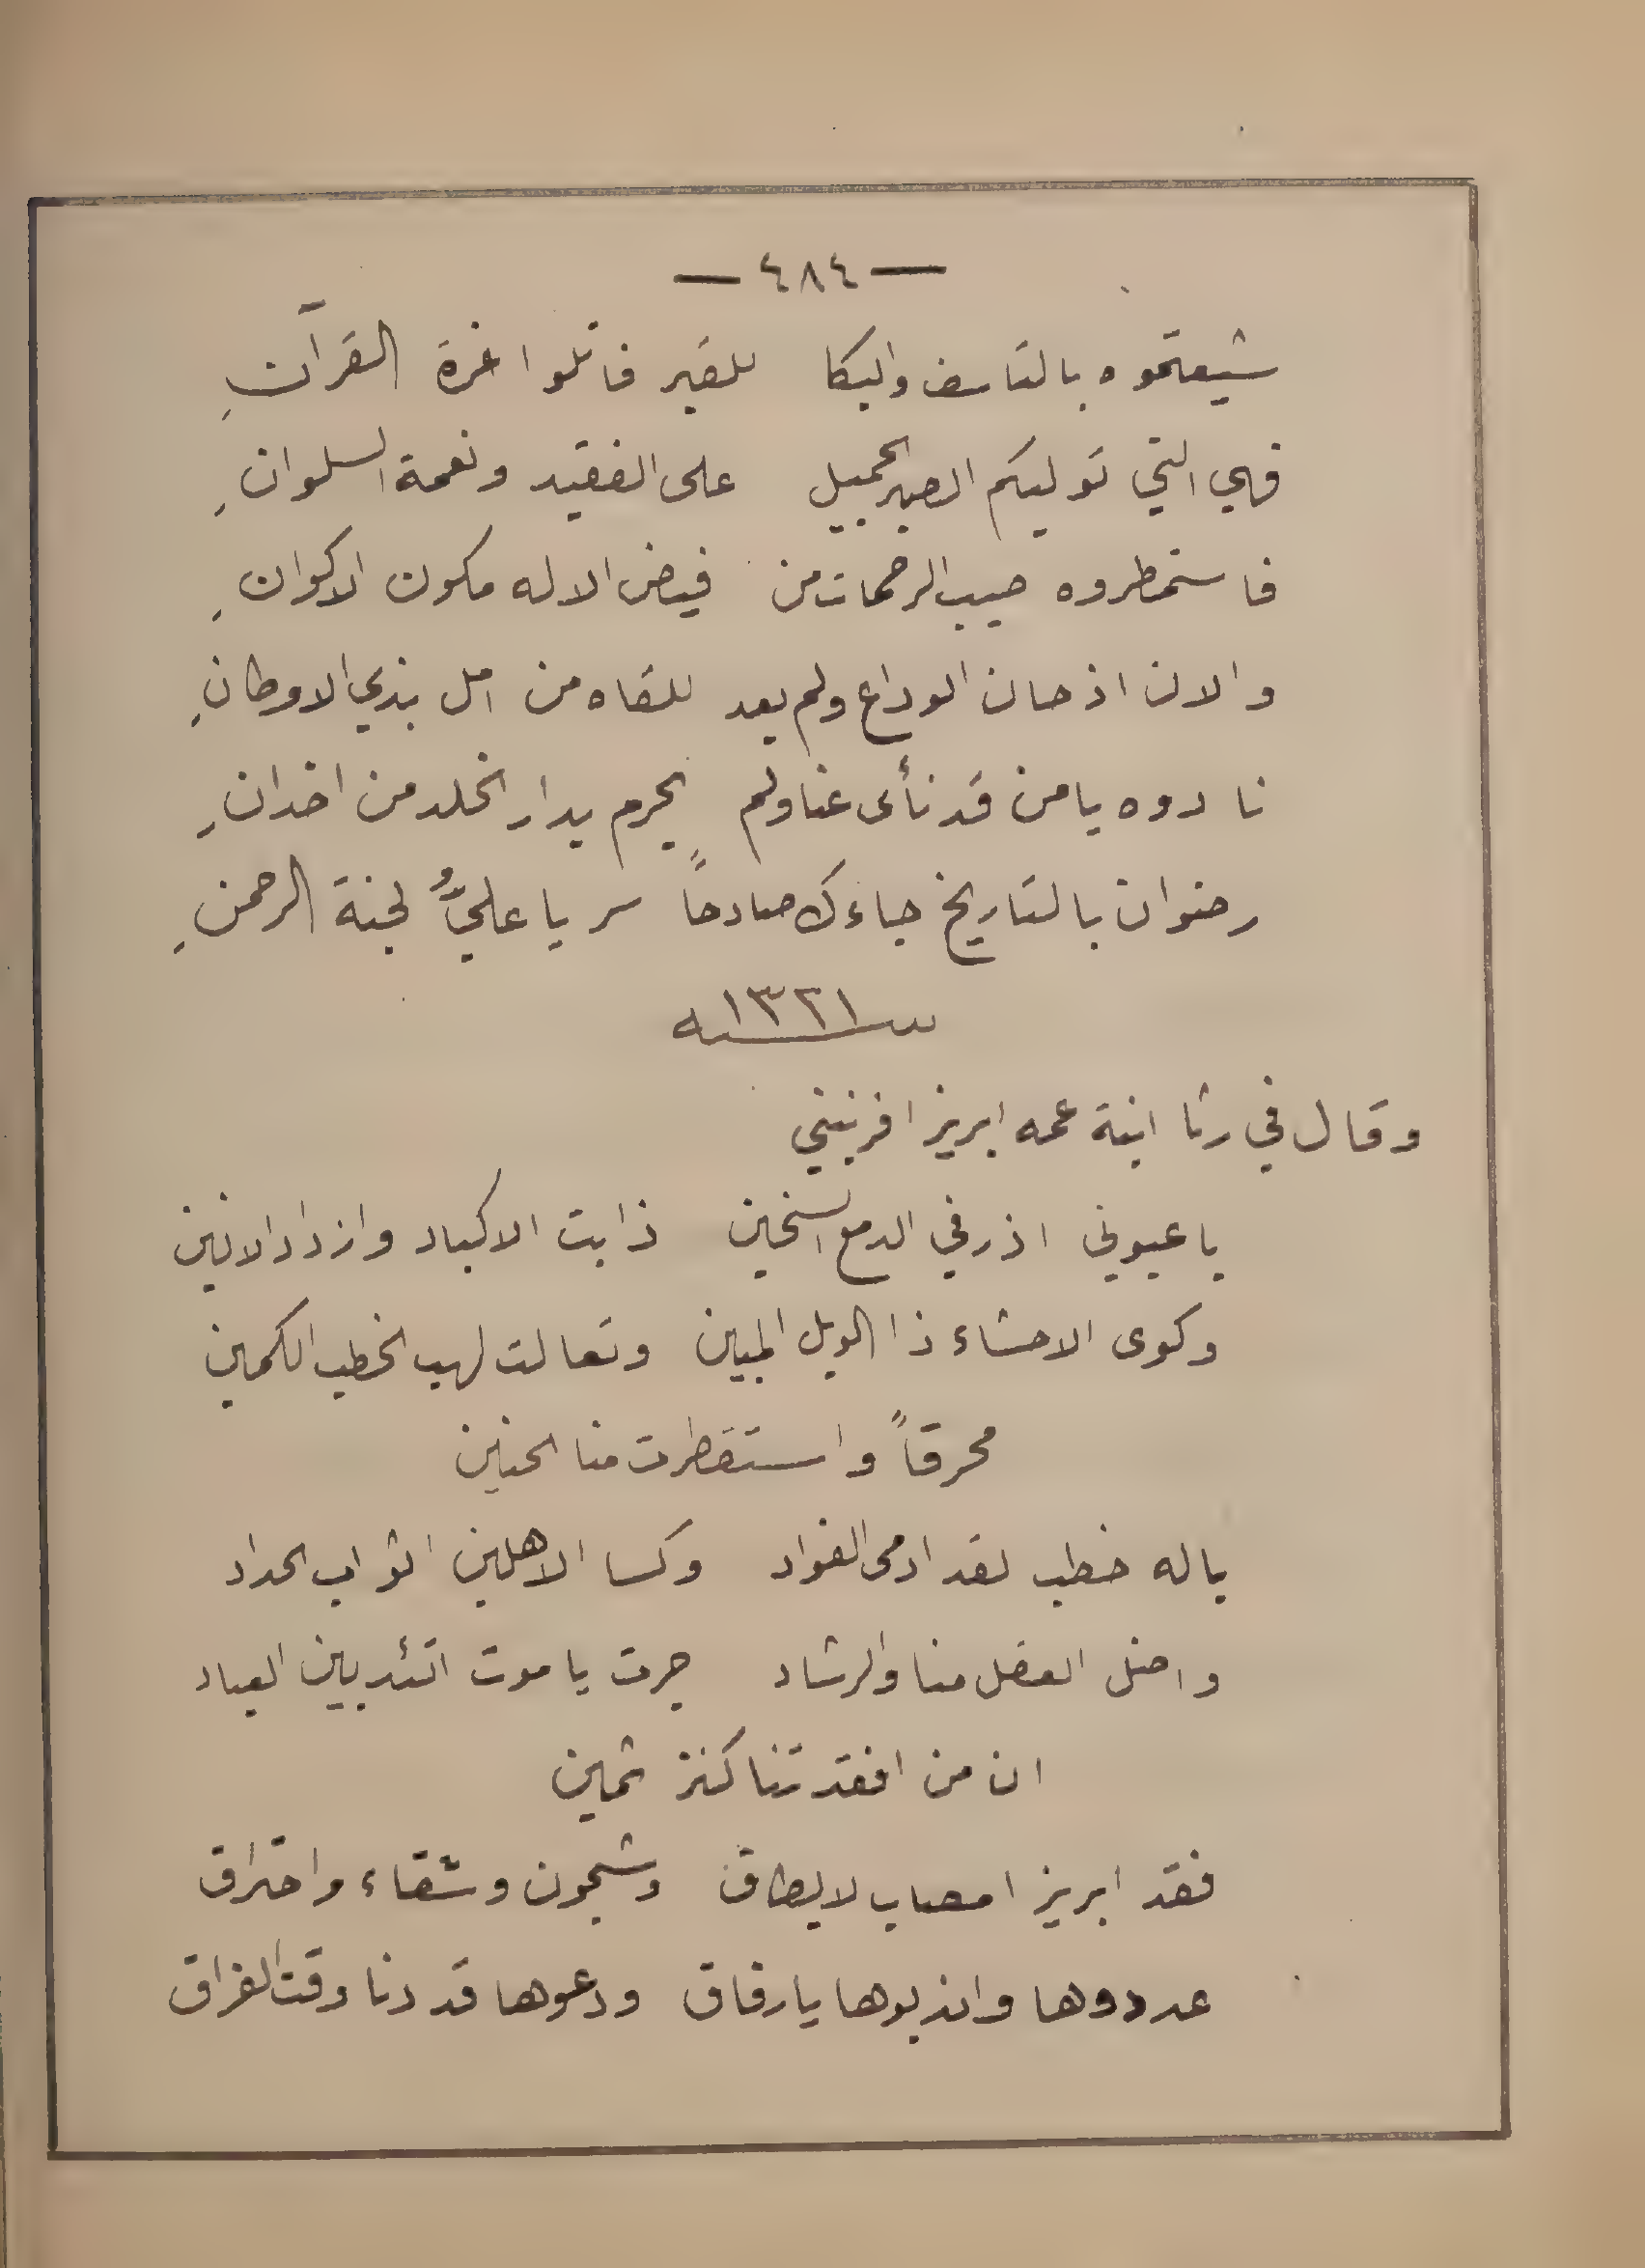 — ٤٨٤ —
شيعتموه بالتاسف والبكا للقبر فاتلوا غرة القرآنِ
فهي التي توليكم الصبر الجميل على الفقيد ونعمة السلوانِ
فاستمطروه صيب الرحمات من فيض الاله مكون الاكوانِ
والان اذ حان الوداع ولم يعد للقاه من امل بذي الاوطانِ
نادوه يا من قد نأى عنا ولم يحرم بدار الخلد من اخدانِ
رضوان بالتاريخ جاءك صادحاً سر يا عليٌّ لجنة الرحمنِ
سنه ١٣٢١
وقال في رثا ابنة عمه ابريزا فرنيني
يا عيوني اذرفي الدمع السخين ذابت الاكباد وازداد الانين
وكوى الاحشاء ذا الويل المبين وتعالت لهب الخطب الكمين
محرقاً واستقطرت منا الحنين
ياله خطب لقد ادمى الفواد وكسا الاهلين اثواب الحداد
واضل العقل منا والرشاد جرت يا موت اتئد بين العباد
ان من افقدتنا كنز ثمين
فقد ابريزا مصاب لا يطاق وشجون وشقاء واحتراق
عددوها واندبوها يا رفاق ودعوها قد دنا وقت الفراق